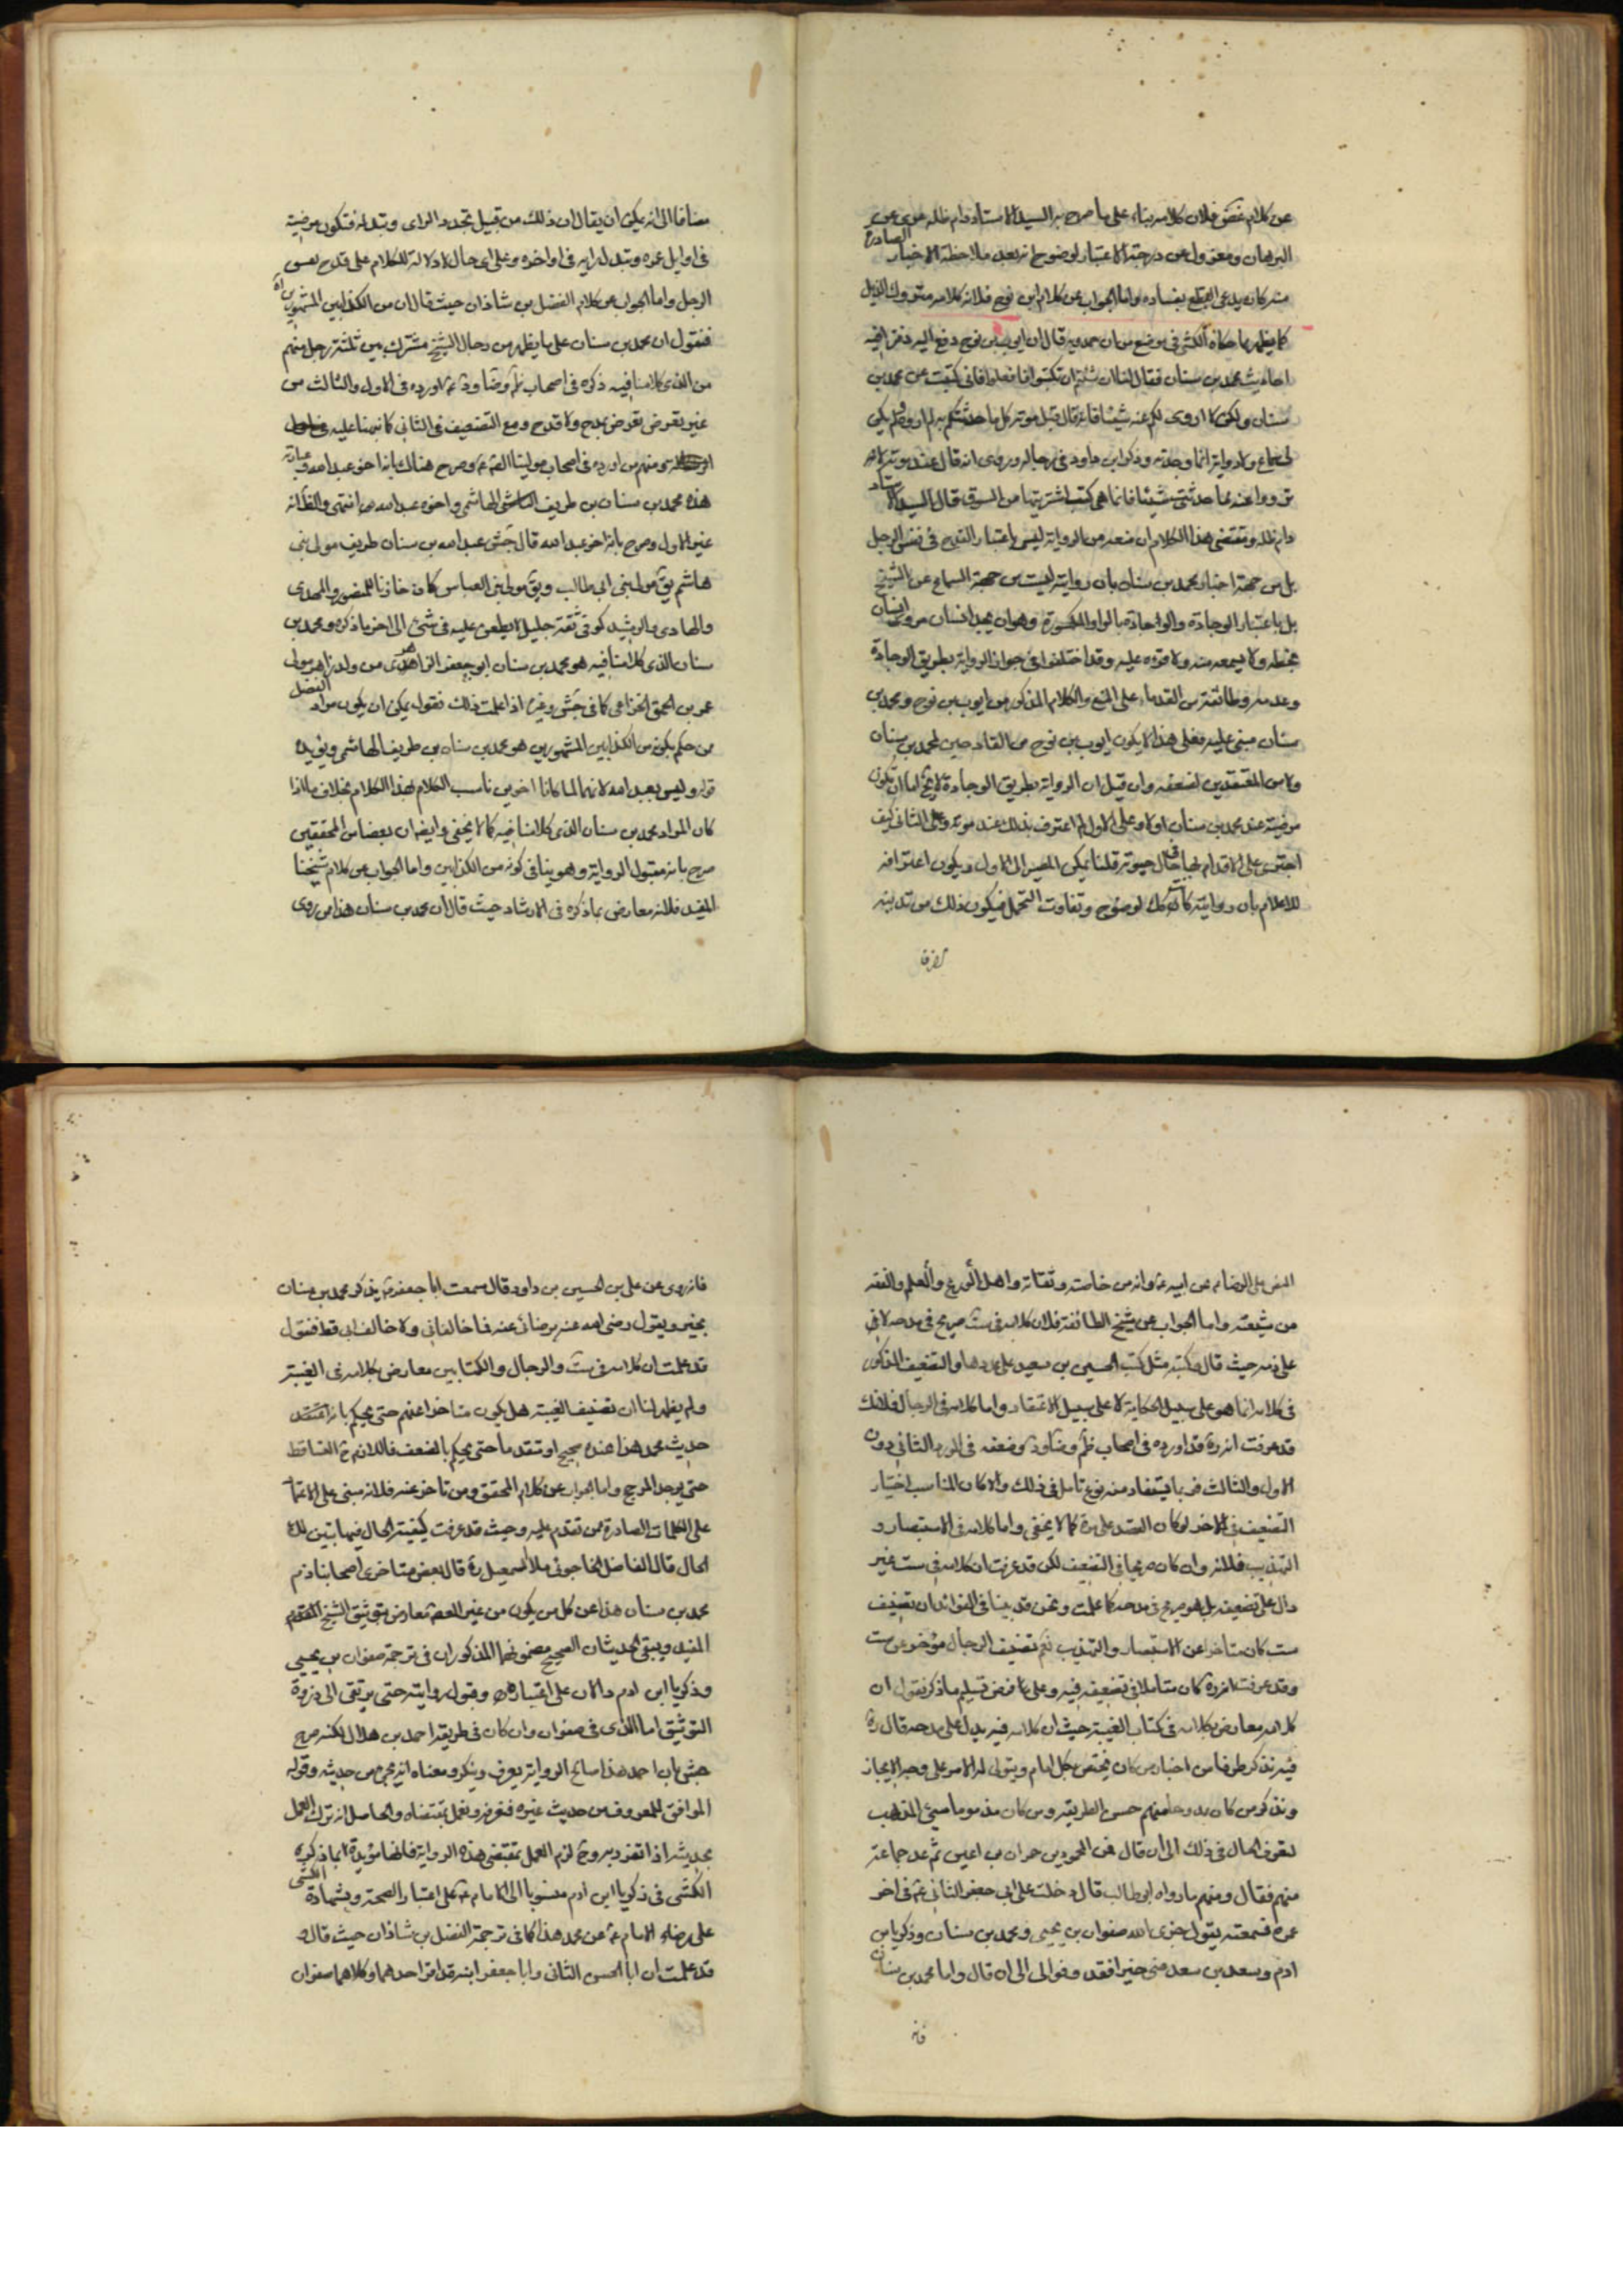 عن كلام غض فلان كلامه بناء على ما صرح به السيد الاستاد دام ظله عرى عن
البرهان ومعزول عن درجة الاعتبار لوضوح انه بعد ملاحظة الاخبار الصادرة
منه كان يدعى القطع بفساده واما الجواب عن كلام ابن نوح فلانه كلامه متروك الذيل
كما يظهر مما حكاه الكشى فى موضع من ان حمدويه قال ان ايوب بن نوح دفع اليه دفترا فيه
احاديث محمد بن سنان فقال لنا ان شئتم ان تكتبوا فافعلوا فانى كتبت عن محمد بن
سنان ولكن لا اروى لكم عنه شيئا فانه قال قبل موته كل ما حدثتكم به لم اروه ولم يكن
لى سماع ولا رواية انما وجدته وذكر ابن داود فى رجاله وروى انه قال عند موته لا
ترووا عنه مما حدثت شيئا فانما هى كتب اشتريتها من السوق قال السيد الاستاد
دام ظله وتقتضى هذا الكلام ان منعه من الرواية ليس باعتبار القدح فى نفس الرجل
بل من جهة اخبار محمد بن سنان بان روايته ليست من جهة السماع عن الشيخ
بل باعتبار الوجادة والواجادة بالواو المكسورة وهو ان يجد انسان مروى انسان
بخطه ولا يسمعه منه ولا قرءه عليه وقد اختلفوا فى جواز الرواية بطريق الوجادة
وعدمه وطائفة من القدماء على المنع والكلام المذكور من ايوب بن نوح ومحمد بن
سنان مبنى عليه فعلى هذا لا يكون ايوب بن نوح من القادحين لمحمد بن سنان
ولا من المعتقدين لضعفه وان قيل ان الرواية بطريق الوجادة لا يخ اما ان تكون
مرضية عند محمد بن سنان اولا وعلى الاول لم اعترف بذلك عند موته وعلى الثانى كيف
اجترى على الاقدام بها فى حال حيوته قلنا يمكن المصير الى الاول ويكون اعترافه
للاعلام بان روايته كانت كك لوضوح وتفاوت التحمل فيكون ذلك من تدينه
مضافا الى انه يمكن ان يقال ان ذلك من قبيل تجدد الراى وتبدله فتكون مرضية
فى اوايل عمره وتبدل رايه فى اواخره وعلى اى حال لا دلالة للكلام على قدح نفس
الرجل واما الجواب عن كلام الفضل بن شاذان حيث قال ان من الكذابين المشهورين اه
فنقول ان محمد بن سنان على ما يظهر من رجال الشيخ مشترك بين ثلثة رجل منهم
من الذى كلامنا فيه ذكره فى اصحاب ظم وضا ود ع اورده فى الاول والثالث من
غير تعرض تعرض بمدح ولا قدح ومع التضعيف فى الثانى كما نبهنا عليه
ومنهم من اورده فى اصحاب مولينا الصم ع وصرح هناك بانه اخو عبد الله وعبارته
هذه محمد بن سنان بن طريف الهاشمى واخوه عبد الله انتهى والظ انه
غير الاول وصرح بانه اخو عبد الله قال جش عبد الله بن سنان طريف مولى بنى
هاشم يق مولى بنى ابى طالب ويق مولى بنى العباس كان خازنا للمنصور والمهدى
والهادى والرشيد كوفى ثقة جليل لا يطعن عليه فى شئ الى اخر ما ذكره ومحمد بن
سنان الذى كلامنا فيه هو محمد بن سنان ابو جعفر الزاهرى من ولد زاهر مولى
عمرو بن الحمق الخزاعى كما فى جش وغيره اذا علمت ذلك نقول يمكن ان يكون مراد الفضل
من حكم بكونه من الكذابين المشهورين هو محمد بن سنان بن طريف الهاشمى ويؤيده
قوله وليس بعبد الله لانهما لما كانا اخوين ناسب الكلام لهذا الكلام بخلاف ما اذا
كان المراد محمد بن سنان الذى كلامنا فيه كما لا يخفى وايضا ان بعضا من المحققين
صرح بانه مقبول الرواية وهو ينافى كونه من الكذابين واما الجواب عن كلام شيخنا
المفيد فلانه معارض بما ذكره فى الارشاد حيث قال ان محمد بن سنان هذا ممن روى
النص على الرضا ع عن ابيه ع وانه من خاصته وثقاته واهل الورع والعلم والفقه
من شيعته واما الجواب عن شيخ الطائفة فلان كلامه فى ست صريح فى مدحه لا فى
على ذمه حيث قال وكتبه مثل كتب الحسين بن سعيد على عددها والتضعيف المذكور
فى كلامه انما هو على سبيل الحكاية لا على سبيل الاعتقاد واما كلامه فى الرجال فلانك
قد عرفت انه ره قد اورده فى اصحاب ظم وضا ود وضعفه فى المورد الثانى دون
الاول والثالث فربما يستفاد منه نوع تامل فى ذلك والا كان المناسب اختيار
التضعيف فى الاخر لو كان القصد على مرة كما لا يخفى واما كلامه فى الاستبصار و
التهذيب فلانه وان كان صريحا فى التضعيف لكن قد عرفت ان كلامه فى ست غير
دال على تضعيفه بل هو صريح فى مدحه كما علمت ونحن قد بينا فى الفوائد ان تصنيف
ست كان متاخرا عن الاستبصار والتهذيب نعم تصنيف الرجال مؤخر عن ست
وقد عرفت انه ره كان متاملا فى تضعيفه فيه وعلى فرض تسليم ما ذكر نقول ان
كلامه معارض بكلامه فى كتاب الغيبة حيث ان كلامه فيه يدل على مدحه قال ره
فيه نذكر طرفا من اخبار من كان يختص بكل امام ويتولى له الامر على وجه الايجاز
ونذكر من كان ممدوحا منهم حسن الطريقة ومن كان مذموما سيئ المذهب
لتعرف الحال فى ذلك الى ان قال فمن المحمودين حمران بن اعين ثم عد جماعة
منهم فقال ومنهم ما رواه ابو طالب قال دخلت على ابى جعفر الثانى ع فى اخر
عمره فسمعته يقول جزى الله صفوان بن يحيى ومحمد بن سنان وذكريا بن
ادم وسعد بن سعد عنى خيرا فقد وفوا لى الى ان قال واما محمد بن سنان
فانه
فانه روى عن على بن الحسين بن داود قال سمعت ابا جعفر ع يذكر محمد بن سنان
بخير ويقول رضى الله عنه برضائى عنه فما خالفنى ولا خالف ابى قط فنقول
قد علمت ان كلامه فى ست والرجال والكتابين معارض بكلامه فى الغيبة
ولم يظهر لنا ان تصنيف الغيبة هل يكون متاخرا عنهم حتى يحكم بانه اعتقد
حديث محمد هذا عنده صحيح او تقدما حتى يحكم بالضعف فاللازم ح التساقط
حتى يوجد المرجح واما الجواب عن كلام المحقق ومن تاخر عنه فلانه مبنى على الاعتماد
على الكلمات الصادرة ممن تقدم عليه وحيث قد عرفت كيفية الحال فيها تبين لك
الحال قال الفاضل الخاجوئى ملا اسمعيل ره قال بعض متاخرى اصحابنا ذم
محمد بن سنان هذا عن كل من يكون من غير المعصوم معارض بتوثيق الشيخ المتقدم
المفيد ويبقى الحديثان الصحيح مضمونهما المذكوران فى ترجمة صفوان بن يحيى
وذكريا ابن ادم دالان على اعتباره وقبول روايته حتى يرتقى الى ذروة
التوثيق اما الذى فى صفوان وان كان فى طريقه احمد بن هلال لكنه صرح
جش بان احمد هذا صالح الرواية يعرف وينكر ومعناه انه يخرج من حديثه وقوله
الموافق للمعروف من حديث غيره فنعرفه ونعمل بمقتضاه والحاصل انه ترك العمل
بحديثه اذا تفرد به وح لزم العمل بمقتضى هذه الرواية فانها مؤيدة بما ذكره الكشى
الكشى فى ذكريا ابن ادم منسوبا الى الامام ع على اعتبار الصحة وبشهادة
على رضاء الامام ع عن محمد هذا كما فى ترجمة الفضل بن شاذان حيث قال و
قد علمت ان ابا الحسن الثانى وابا جعفر ابنه قد اقرا احدهما وكلاهما صفوان